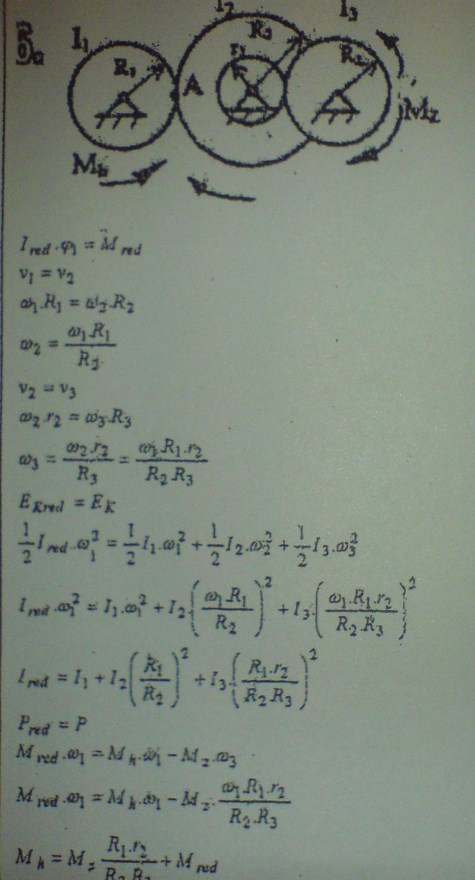 I₂ I₃
I₁ R₁ A r₂ R₂ R₃
M_k M_z
I_red . φ₁ = M_red
v₁ = v₂
ω₁ . R₁ = ω₂ . R₂
ω₂ = ω₁ . R₁ / R₂
v₂ = v₃
ω₂ . r₂ = ω₃ . R₃
ω₃ = ω₂ . r₂ / R₃ = ω₁ . R₁ . r₂ / R₂ . R₃
E_Kred = E_K
1/2 I_red . ω₁² = 1/2 I₁ . ω₁² + 1/2 I₂ . ω₂² + 1/2 I₃ . ω₃²
I_red . ω₁² = I₁ . ω₁² + I₂ . (ω₁ . R₁ / R₂)² + I₃ . (ω₁ . R₁ . r₂ / R₂ . R₃)²
I_red = I₁ + I₂ (R₁ / R₂)² + I₃ . (R₁ . r₂ / R₂ . R₃)²
P_red = P
M_red . ω₁ = M_k . ω₁ − M_z . ω₃
M_red . ω₁ = M_k . ω₁ − M_z . ω₁ . R₁ . r₂ / R₂ . R₃
M_k = M_z R₁ . r₂ / R₂ . R₃ + M_red